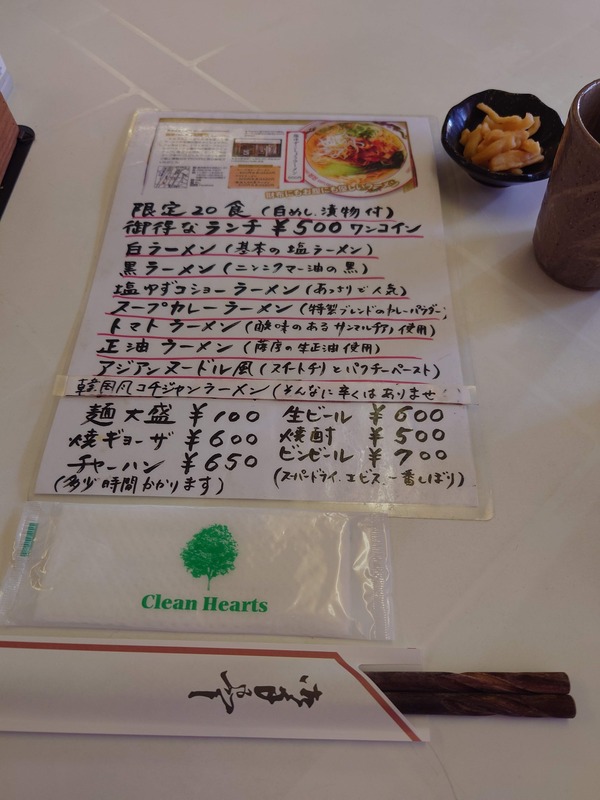 限定20食 (白めし.漬物付)
御得なランチ ¥500 ワンコイン
白ラーメン (基本の塩ラーメン)
黒ラーメン (ニンニクマー油の黒)
塩ゆずコショーラーメン (あっさりで人気)
スープカレーラーメン (特製ブレンドのカレーパウダー)
トマトラーメン (酸味のあるサンマルツァノ使用)
正油ラーメン (薩摩の生正油使用)
アジアンヌードル風 (スイートチリとパクチーペースト)
韓国風コチジャンラーメン (そんなに辛くはありませ
麺大盛 ¥100 生ビール ¥600
焼ギョーザ ¥600 焼酎 ¥500
チャーハン ¥650 ビンビール ¥700
(多少時間かかります) (スーパードライ.エビス.一番しぼり)
Clean Hearts